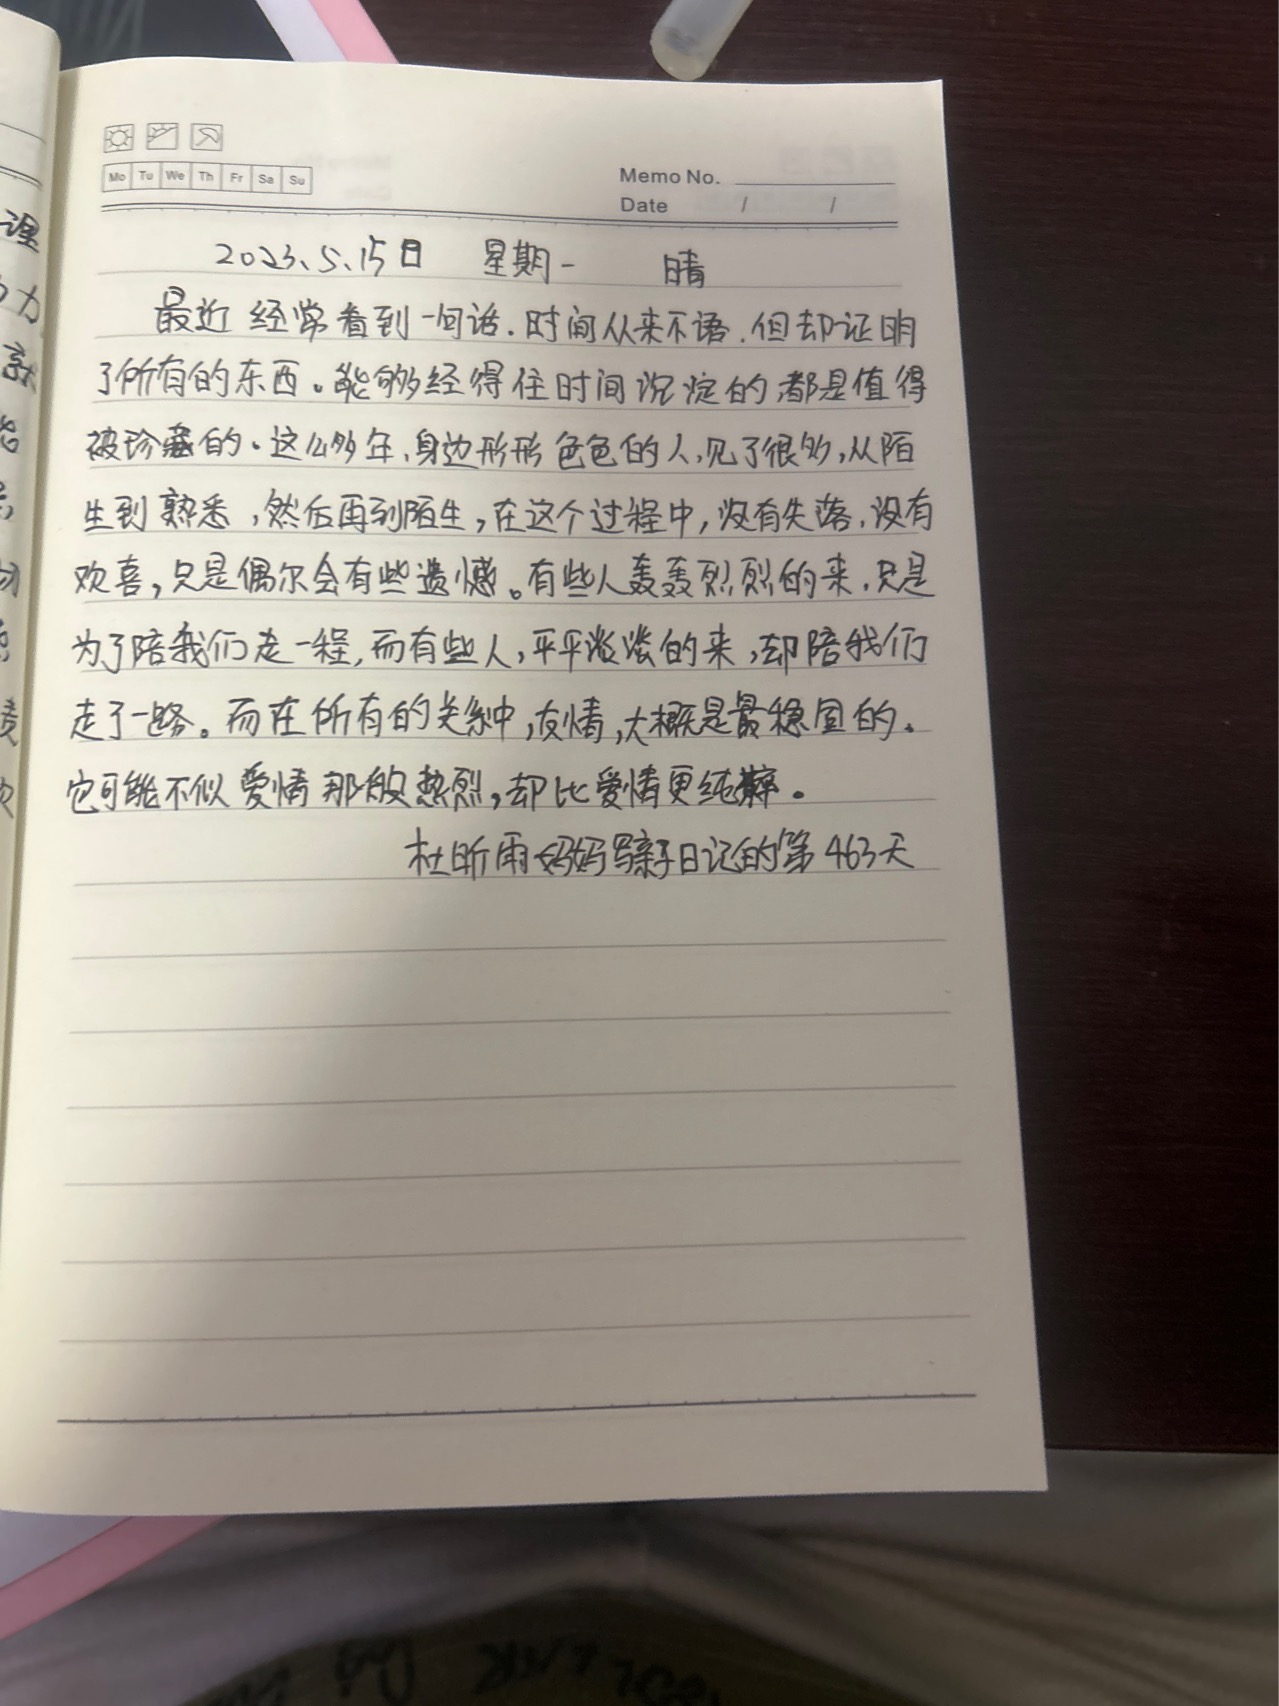 Mo Tu We Th Fr Sa Su
Memo No.
Date / /
2023.5.15日 星期一 晴
最近经常看到一句话.时间从来不语.但却证明
了所有的东西。能够经得住时间沉淀的都是值得
被珍藏的.这么多年、身边形形色色的人,见了很多,从陌
生到熟悉,然后再到陌生,在这个过程中,没有失落.没有
欢喜,只是偶尔会有些遗憾。有些人轰轰烈烈的来.只是
为了陪我们走一程,而有些人,平平淡淡的来,却陪我们
走了一路。而在所有的关系中,友情,大概是最稳固的.
它可能不似爱情那般热烈,却比爱情更纯粹。
杜昕雨妈妈写亲子日记的第463天
理
力
就